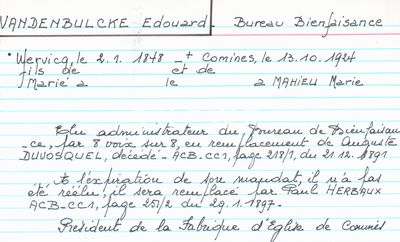 VANDENBULCKE Edouard. Bureau Bienfaisance
° Wervicq, le 2. 1. 1848 - + Comines, le 13. 10. 1924
fils de et de
Marié à le à MAHIEU Marie
Elu administrateur du Bureau de Bienfaisan
-ce, par 8 voix sur 8, en remplacement de Auguste
DUVOSQUEL, décédé - ACB-CC1, page 218/1, du 21.12.1891
A l'expiration de son mandat, il n'a pas
été réélu; il sera remplacé par Paul HERBAUX
ACB-CC1, page 251/2 du 29.1.1897.
Président de la Fabrique d'Eglise de Comines